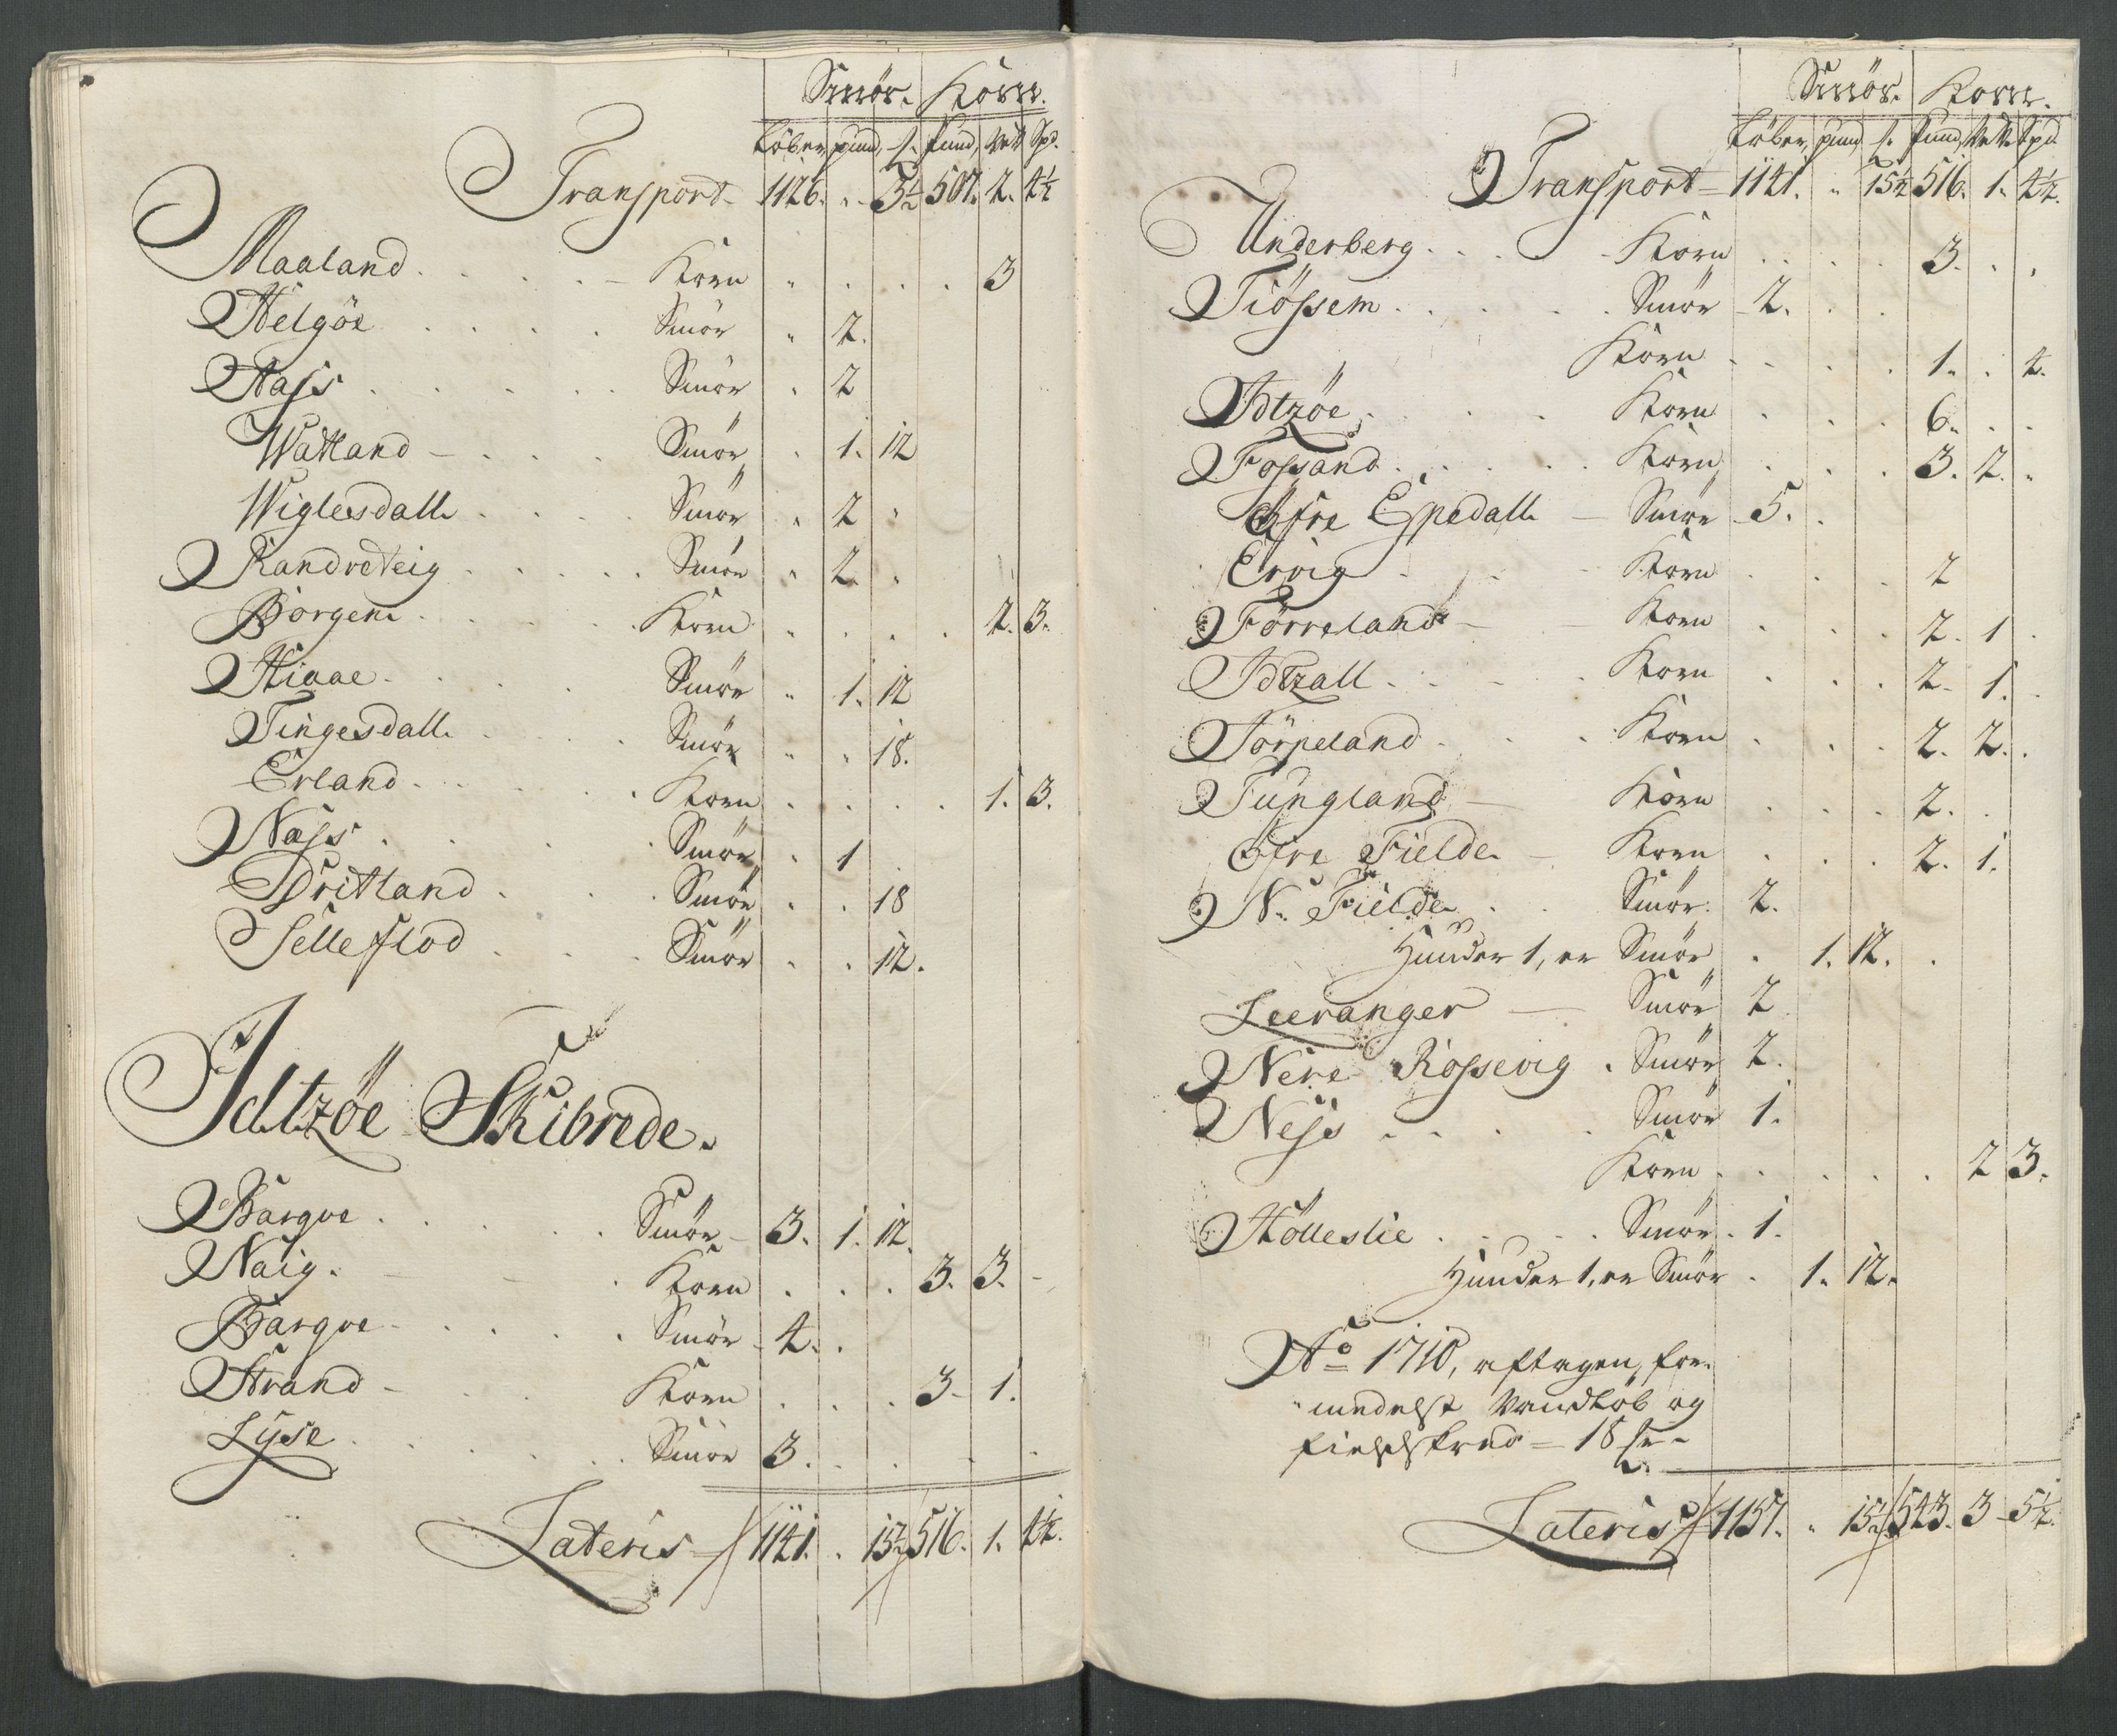 Smör. Korn.
Löber, pund, . Pund, Vett Spd.
Transport 1126. . 3½ 507. 2. 4½
Maaland . . . Korn . . . . 3
Helgöe . . . . Smör . 2.
Hass . . . . Smör . 2
Watland . . . Smör . 1. 12
Wiglesdall . . . Smör . 2 .
Randvedeig . . . . Smör . 2. .
Borgen . . . . Korn . . . . 2. 3.
Hiaae . . . Smör . 1. 12
Tingesdall . . . Smör . . 18.
Erland . . . . Korn . . . . 1. 3.
Nass . . . Smör . 1
Dritland . . . Smör . . 18
Selleflod . . . Smör . . 12.
Idtzöe Skibrede.
Bargve . . . . Smör 3. 1. 12.
Naig . . . Korn . . . 3. 3. -
Bargve . . . . Smör 4. .
Strand . . . Korn . . . 3. 1.
Lyse . . . . Smör 3. . . . .
Lateris 1141. . 15½ 516. 1. 4½.
Smör. Korn.
Löber, pund . Pund, Vett Spd
Transport 1141. . 15½ 516. 1. 4½.
Underberg . . . Korn . . . 3. . .
Tiössem . . . . Smör 2. . .
Korn . . . . 1. . 4.
Idtzöe . . . Korn . . . 6. . .
Fossand . . . . Korn . . . 3. 2. .
Öfre Espedall - Smör 5. .
Ervig . . . Korn . . . 2
Förreland - Korn . . . 2. 1 .
Idtzall . . . . Korn . . . 2. 1. .
Jörpeland . . . Korn . . . 2. 2. .
Tungland - Korn . . . 2. .
Öfre Fielde - Korn . . . 2. 1.
N. Fielde . . Smör. 2.
Hunder 1, er Smör . 1. 12. .
Leeranger - Smör 2
Nere Rossevig . Smör 2.
Ness . . . . Smör 1.
Korn . . . . . 2 3.
Hölleslie . . . . Smör. 1.
Hunder 1, er Smör . 1. 12.
Aö 1710, aftagen, for-
medelst Vandlöb og
fieldskred = 18
Lateris 1157. . 15½ 543. 3 5½.